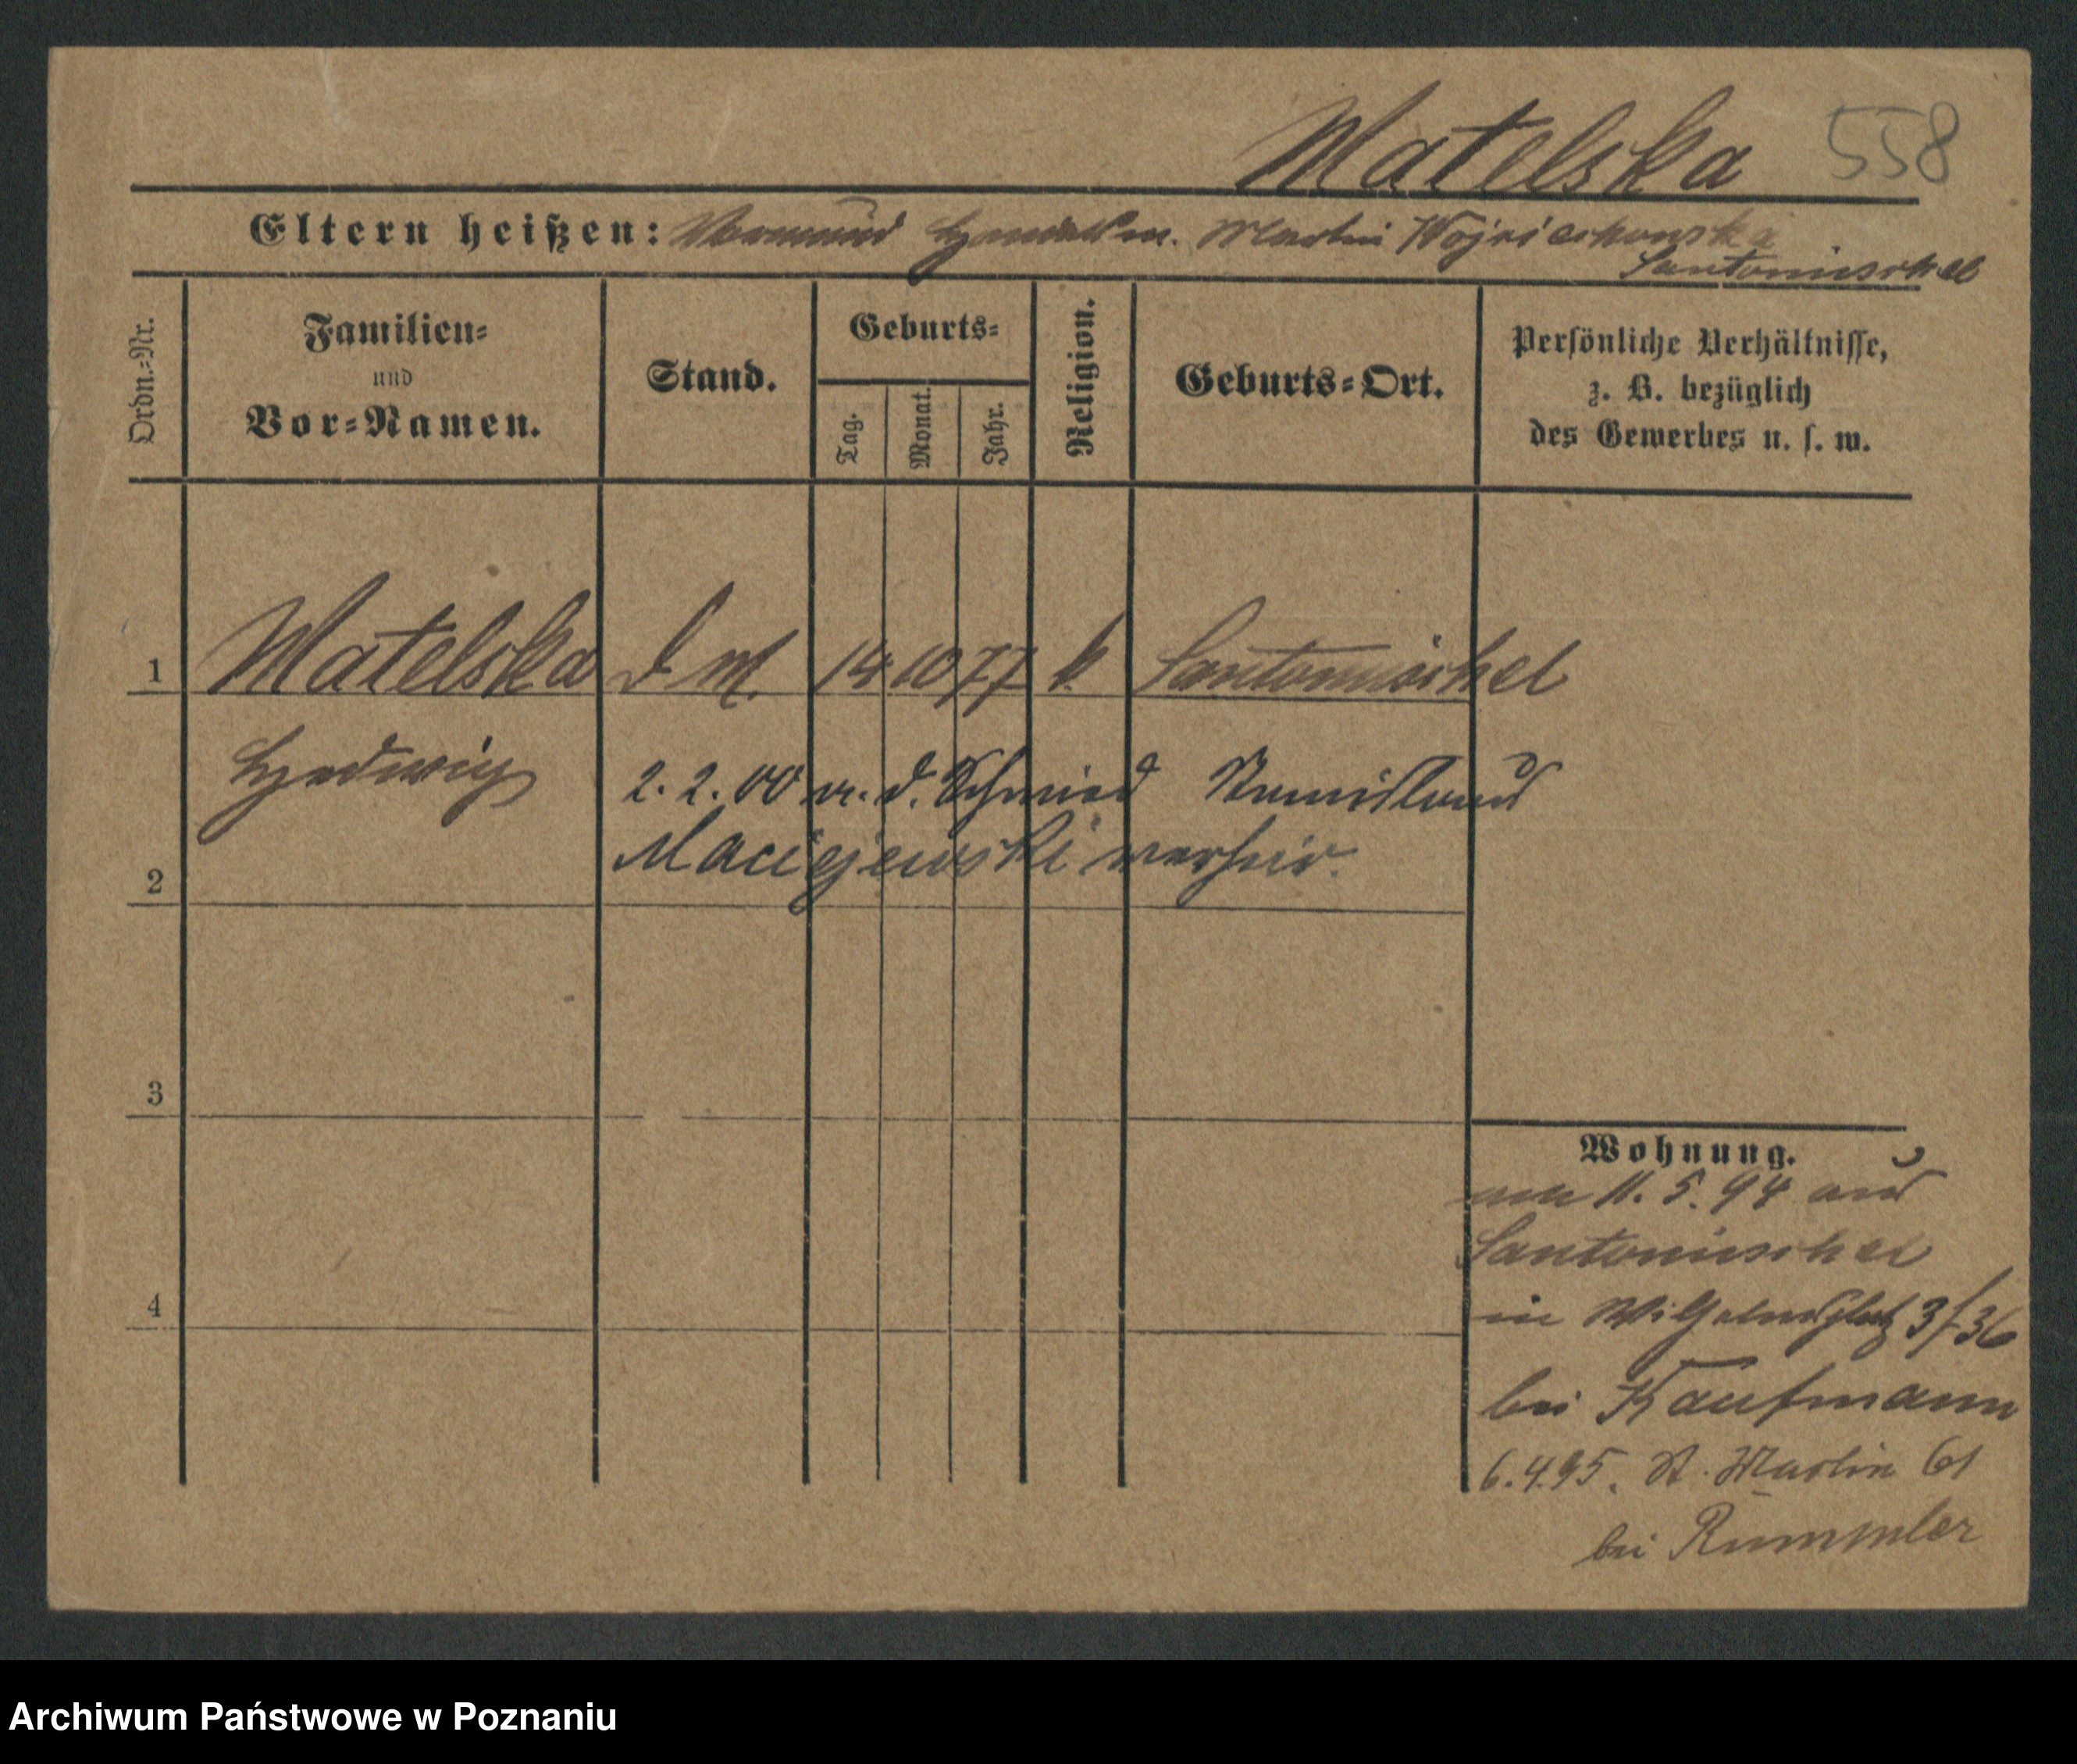 Matelska 558
Eltern heißen: Vormund Martin Wojciechowska
Santomischel
Ordn.-Nr.
Familien-
und
Vor-Namen.
Stand.
Geburts-
Tag.
Monat.
Jahr.
Religion.
Geburts-Ort.
Persönliche Verhältnisse,
z. B. bezüglich
des Gewerbes u. s. w.
1 Matelska d. M. 14 10 77 k. Santomischel
Hedwig 2.2.00 m. d. Schmied Stanislaus
2 Maciejewski verheir.
3
4
Wohnung.
am 11.5.94 aus
Santomischel
in Wilhelmsplatz 3/36
bei Kaufmann
6.4.95. St. Martin 61
bei Rummler
Archiwum Państwowe w Poznaniu